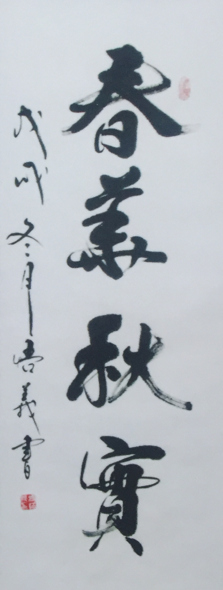 春華秋實
戊戌冬月言義書